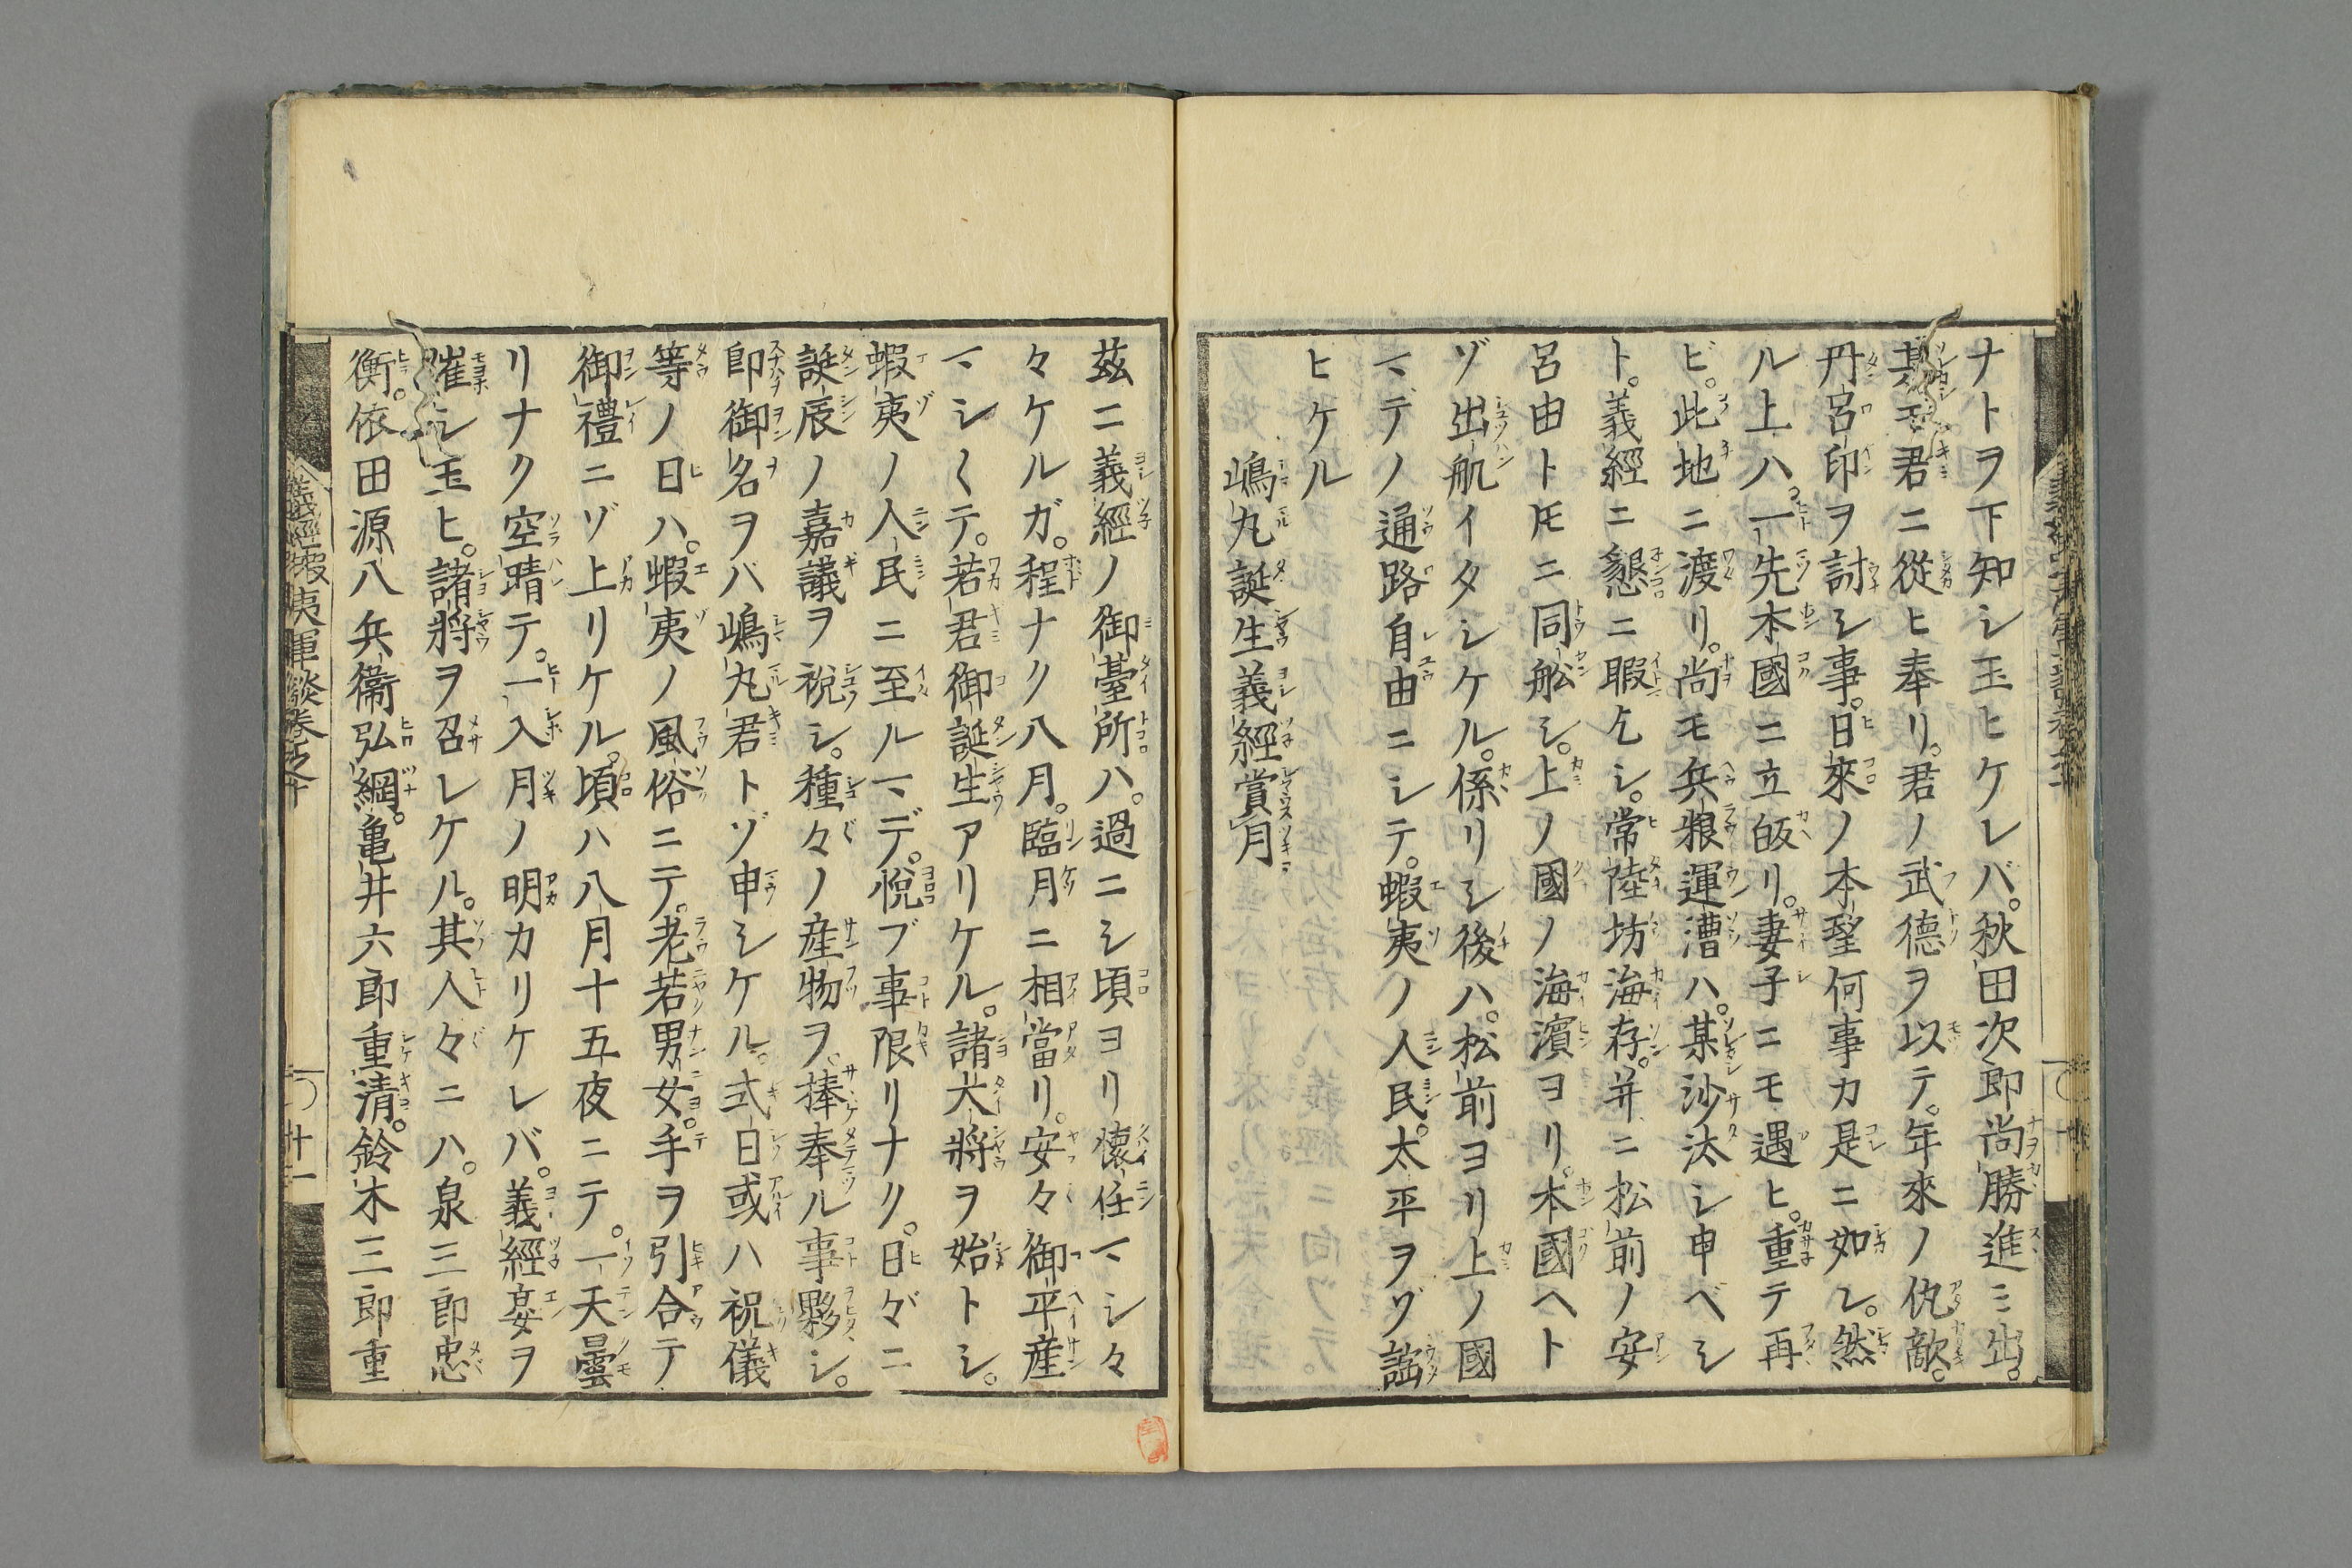 ナトヲ下知シ玉ヒケレバ。秋田次郎尚勝進ミ出。
某モ君ニ從ヒ奉リ。君ノ武德ヲ以テ。年來ノ仇敵。
丹呂印ヲ討シ事。日來ノ本望何事カ是ニ如レ。然
ル上ハ。一先本國ニ立皈リ。妻子ニモ遇ヒ。重テ再
ビ。此地ニ渡リ。尚モ兵粮運漕ハ。某沙汰シ申ベシ
ト。義經ニ懇ニ暇乞シ。常陸坊海存。并ニ松前ノ安
呂由トモニ同舩シ。上ノ國ノ海濱ヨリ。本國ヘト
ゾ出航イタシケル。係リシ後ハ。松前ヨリ上ノ國
マデノ通路自由ニシテ。蝦夷ノ人民。太平ヲゾ謡
ヒケル
嶋丸誕生義經賞月
茲ニ義經ノ御臺所ハ。過ニシ頃ヨリ懷任マシ々
々ケルガ。程ナク八月。臨月ニ相當リ。安々御平産
マシ〱テ。若君御誕生アリケル。諸大將ヲ始トシ。
蝦夷ノ人民ニ至ルマデ。悅ブ事限リナク。日々ニ
誕辰ノ嘉議ヲ祝シ。種々ノ産物ヲ。捧奉ル事夥シ。
即御名ヲバ嶋丸君トゾ申シケル。式日或ハ祝儀
等ノ日ハ。蝦夷ノ風俗ニテ。老若男女。手ヲ引合テ
御禮ニゾ上リケル。頃ハ八月十五夜ニテ。一天曇
リナク空晴テ。一入月ノ明カリケレバ。義經宴ヲ
催シ玉ヒ。諸將ヲ召レケル。其人々ニハ。泉三郎忠
衡。依田源八兵衞弘綱。亀井六郎重清。鈴木三郎重
義經蝦夷軍談卷之十
十一